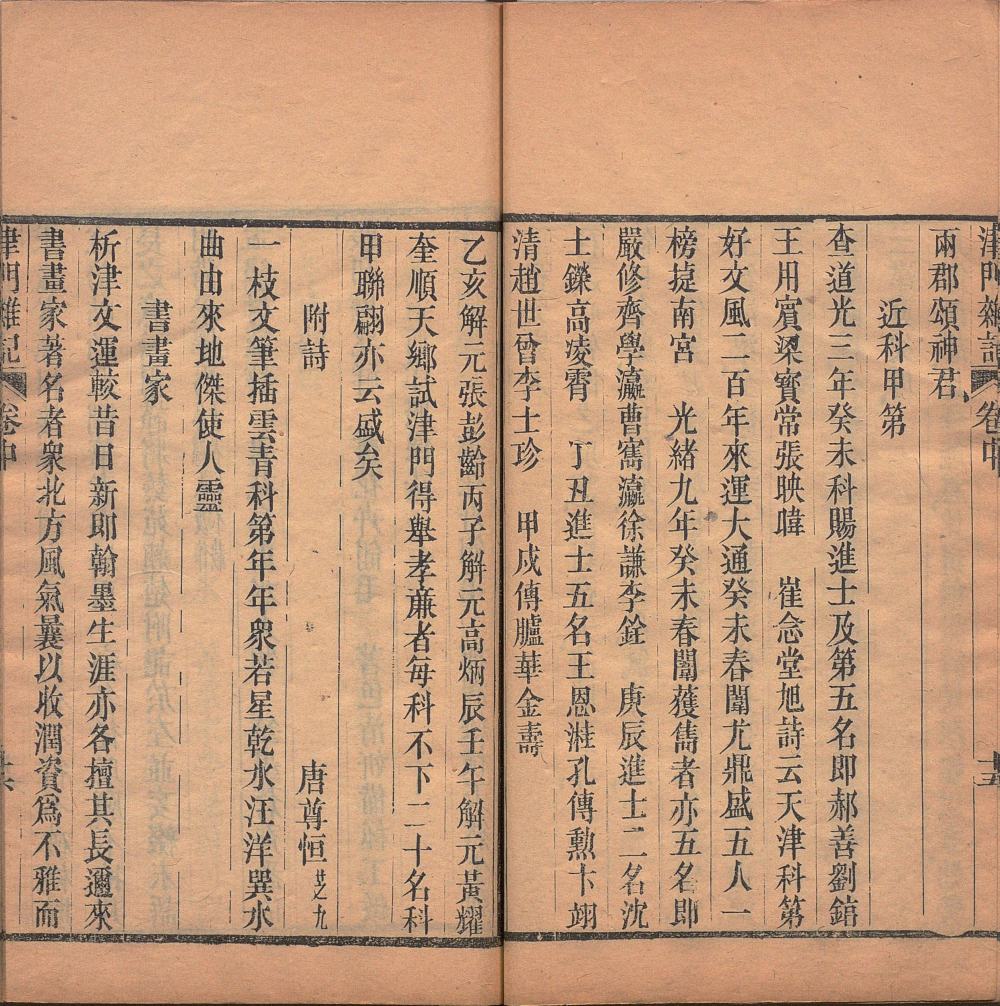 津門雜記 卷中 十五
兩郡頌神君
近科甲第
查道光三年癸未科賜進士及第五名即郝善劉錧
王用賓梁寶常張映暐 崔念堂旭詩云天津科第
好文風二百年來運大通癸未春闈尤鼎盛五人一
榜捷南宮 光緒九年癸未春闈獲雋者亦五名即
嚴修齊學瀛曹寯瀛徐謙李銓 庚辰進士二名沈
士鑅高凌霄 丁丑進士五名王恩溎孔傳勲卞翊
清趙世曾李士珍 甲戌傳臚華金壽
乙亥解元張彭齡丙子解元高炳辰壬午解元黃耀
奎順天鄉試津門得舉孝廉者每科不下二十名科
甲聯翩亦云盛矣
附詩 唐尊恒芝九
一枝文筆插雲青科第年年衆若星乾水汪洋巽水
曲由來地傑使人靈
書畫家
析津文運較昔日新即翰墨生涯亦各擅其長邇來
書畫家著名者衆北方風氣曩以收潤資爲不雅而
津門雜記 卷中 十六